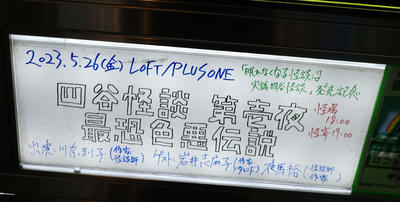 2023.5.26(金) LOFT/PLUSONE
「眠れなくなる怪談沼
実話四谷怪談」発売記念
四谷怪談 第壱夜
最恐色悪伝説
開場 18:00
開宴 19:00
出演:川奈まり子(作家 怪談師) ゲスト:岩井志麻子(作家 タレント) 夜馬裕(怪談師 作家)